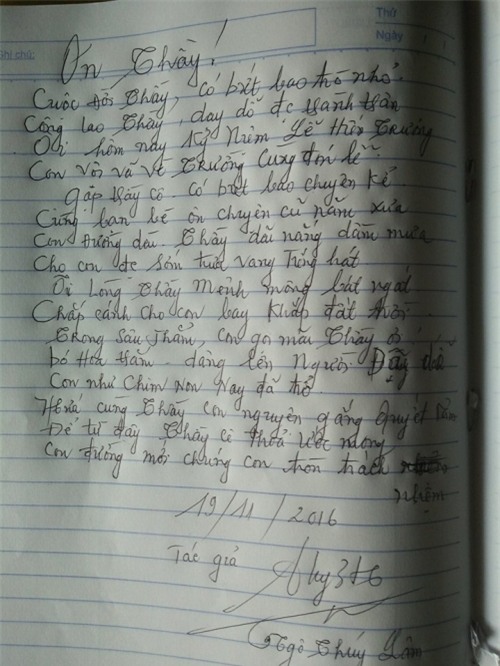 Thứ
Ngày
Ghi chú:
Ơn Thầy!
Cuộc đời Thầy, có biết bao trò nhỏ
Công lao Thầy, dạy dỗ đc thành
Ôi hôm nay kỷ Niệm Lễ Trường
Con Vội vã về Trường cùng đón lễ
Gặp thầy cô. có biết bao chuyện kể
Cùng bạn bè ôn chuyện cũ năm xưa
Con đường dài. Thầy dãi nắng dầm mưa
Cho con đc sớm trưa vang tiếng hát
Ôi Lòng Thầy Mênh mông bát ngát
Chắp cánh cho con bay khắp đất trời
Trong sâu Thẳm, con gọi mãi Thầy ơi
bó Hoa thắm dâng lên Người
Con như Chim Non Nay đã
Hứa cùng Thầy con nguyện gắng Quyết
Để từ đây Thầy Cô thoả ước mong
Con đường mới chúng con tròn trách
nhiệm
19/11/2016
Tác giả
Ngô Thuý